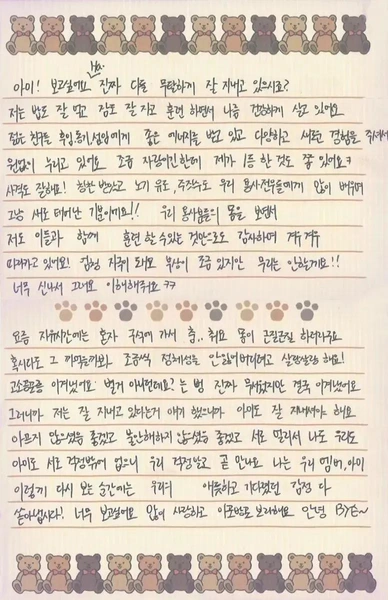 아이! 보고싶어요 ㅠㅠ 진짜 다들 무탈하게 잘 지내고 있으시죠?
저는 밥도 잘 먹고 잠도 잘 자고 훈련 하면서 나름 건강하게 살고 있어요
젊은 친구들 후임 동기 선임에게 좋은 에너지를 받고 있고 다양하고 새로운 경험을
원없이 누리고 있어요 조금 자랑이긴한데 제가 1등 한 것도 좀 있어요ㅋ
사격도 잘해요! 한발 받았고 노기 유도, 주짓수도 우리 용사전우들에게 많이 배우며
그냥 새로 태어난 기분이에요!! 우리 용사분들의 몸을 보면서
저도 이들과 함께 훈련 할 수 있는 것만으로도 감사하며 겨우 겨우
따라가고 있어요! 엄청 지쳐 되요 부상이 조금 있지만 우리는 안하는게요!!
너무 신나서 그래요 이해해줘요 ㅋㅋ
요즘 자유시간에는 혼자 구석에 가서 춤.. 춰요 몸이 근질근질 하더라구요
혹시라도 그 까먹을까봐 조금씩 정체성을 안잃어버리려고 살랑살랑 해요!
고소공포를 이겨냈어요. 별거 아니던데요? 는 뻥 진짜 무서웠지만 결국 이겨냈어요
그러니까 저는 잘 지내고 있다는거 얘기 했으니까 아이도 잘 지내셔야 해요
아프지 않으셨음 좋겠고 불안해하지 않으셨음 좋겠고 서로 멀리서 나도 우리도
아이도 서로 걱정밖에 없으니 우리 걱정말고 곧 만나요 나는 우리 멤버, 아이
이렇게 다시 보는 순간에는 우리의 애틋하고 기다렸던 감정 다
쏟아냅시다! 너무 보고싶어요 많이 사랑하고 이곳밥도 보러해요 안녕 BYE~